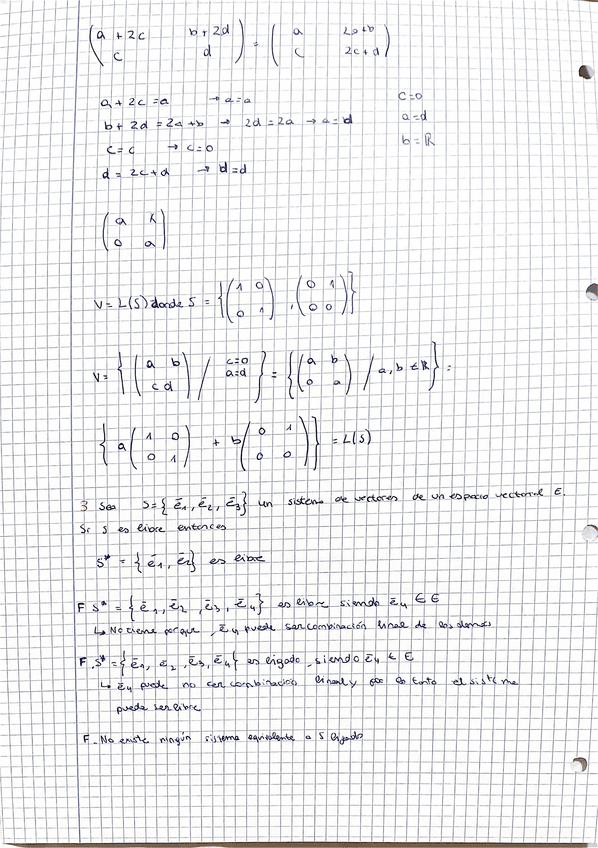 ( a + 2c b + 2d ) = ( a 2a+b )
( c d ) ( c 2c+d )
a + 2c = a → a=a c=0
b + 2d = 2a + b → 2d = 2a → a=d a=d
c = c → c=0 b=ℝ
d = 2c+d → d=d
( a k )
( 0 a )
V = L(S) donde S = { ( 1 0 ) , ( 0 1 ) }
( 0 1 ) ( 0 0 )
V = { ( a b ) / c=0 } = { ( a b ) / a, b ∈ ℝ } =
( c d ) a=d ( 0 a )
{ a ( 1 0 ) + b ( 0 1 ) } = L(S)
( 0 1 ) ( 0 0 )
3 Sea S={ ē1, ē2, ē3} un sistema de vectores de un espacio vectorial E.
Si S es libre entonces
S* = { ē1, ē2} es libre
F S* = { ē1, ē2, ē3, ē4} es libre siendo ē4 ∈ E
↳ No tiene porque, ē4 puede ser combinación lineal de los demás
F S* = { ē1, ē2, ē3, ē4} es ligado, siendo ē4 ∈ E
↳ ē4 puede no ser combinación lineal y por lo tanto el sistema
puede ser libre
F - No existe ningún sistema equivalente a S ligado